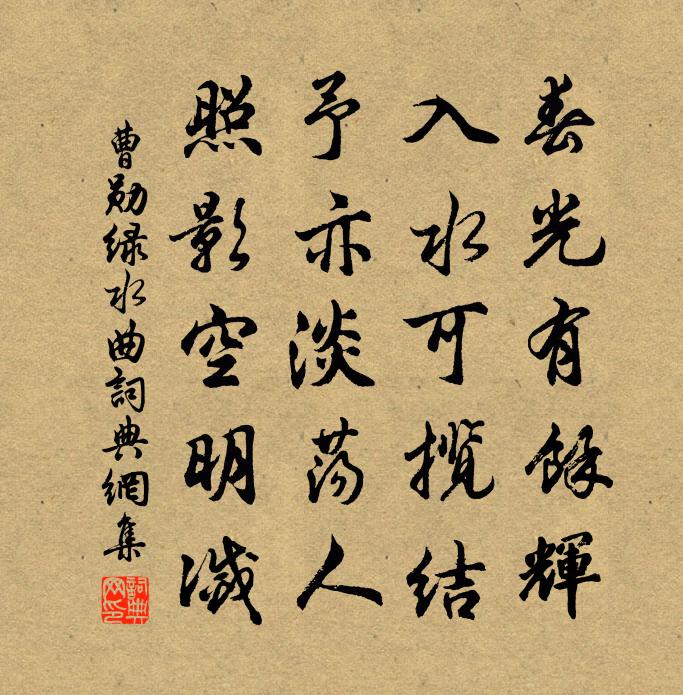 春光有餘輝
入水可攬結
予亦淡蕩人
照影空明滅
曹勛绿水曲詞典網集
詞典網印